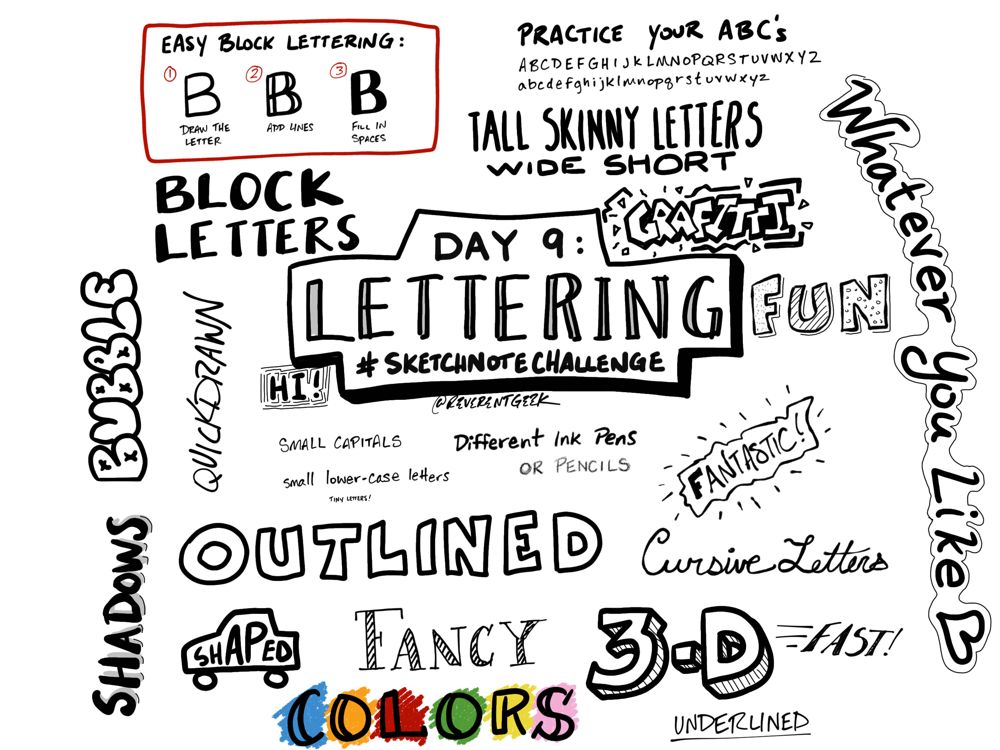 EASY BLOCK LETTERING:
1 2 3
B B B
DRAW THE LETTER
ADD LINES
FILL IN SPACES
PRACTICE YOUR ABC's
ABCDEFGHIJKLMNOPQRSTUVWXYZ
abcdefghijklmnopqrstuvwxyz
TALL SKINNY LETTERS
WIDE SHORT
BLOCK
LETTERS
GRAFITTI
DAY 9:
LETTERING
#SKETCHNOTECHALLENGE
@REVERENTGEEK
FUN
Whatever You Like
BUBBLE
QUICKDRAWN
HI!
SMALL CAPITALS
small lower-case letters
TINY LETTERS!
Different Ink Pens
OR PENCILS
FANTASTIC!
SHADOWS
OUTLINED
Cursive Letters
SHAPED
FANCY
3-D
FAST!
COLORS
UNDERLINED